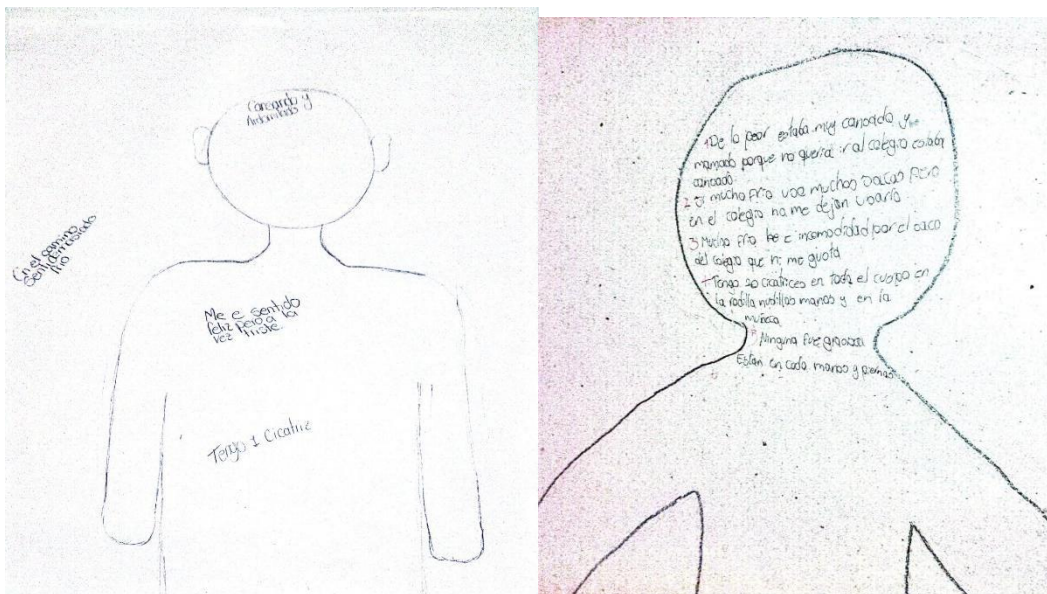 Cansando y
Adormilado
En el camino
Senti demasiado
frio
Me e sentido
feliz pero a la
vez triste.
Tengo 1 Cicatriz
1 De lo peor estaba muy cansado y
mamado porque no queria ir al colegio estaba
cansado.
2 Si mucho frio use muchos Sacos Pero
en el colegio no me dejan usarlo
3 Mucho frio he e incomodidad por el saco
del colegio que no me gusta
Tengo 20 cicatrices en toda el cuerpo en
la rodilla nudillos manos y en la
muñeca
Ninguna fue graciosa
Estan en codo manos y piernas